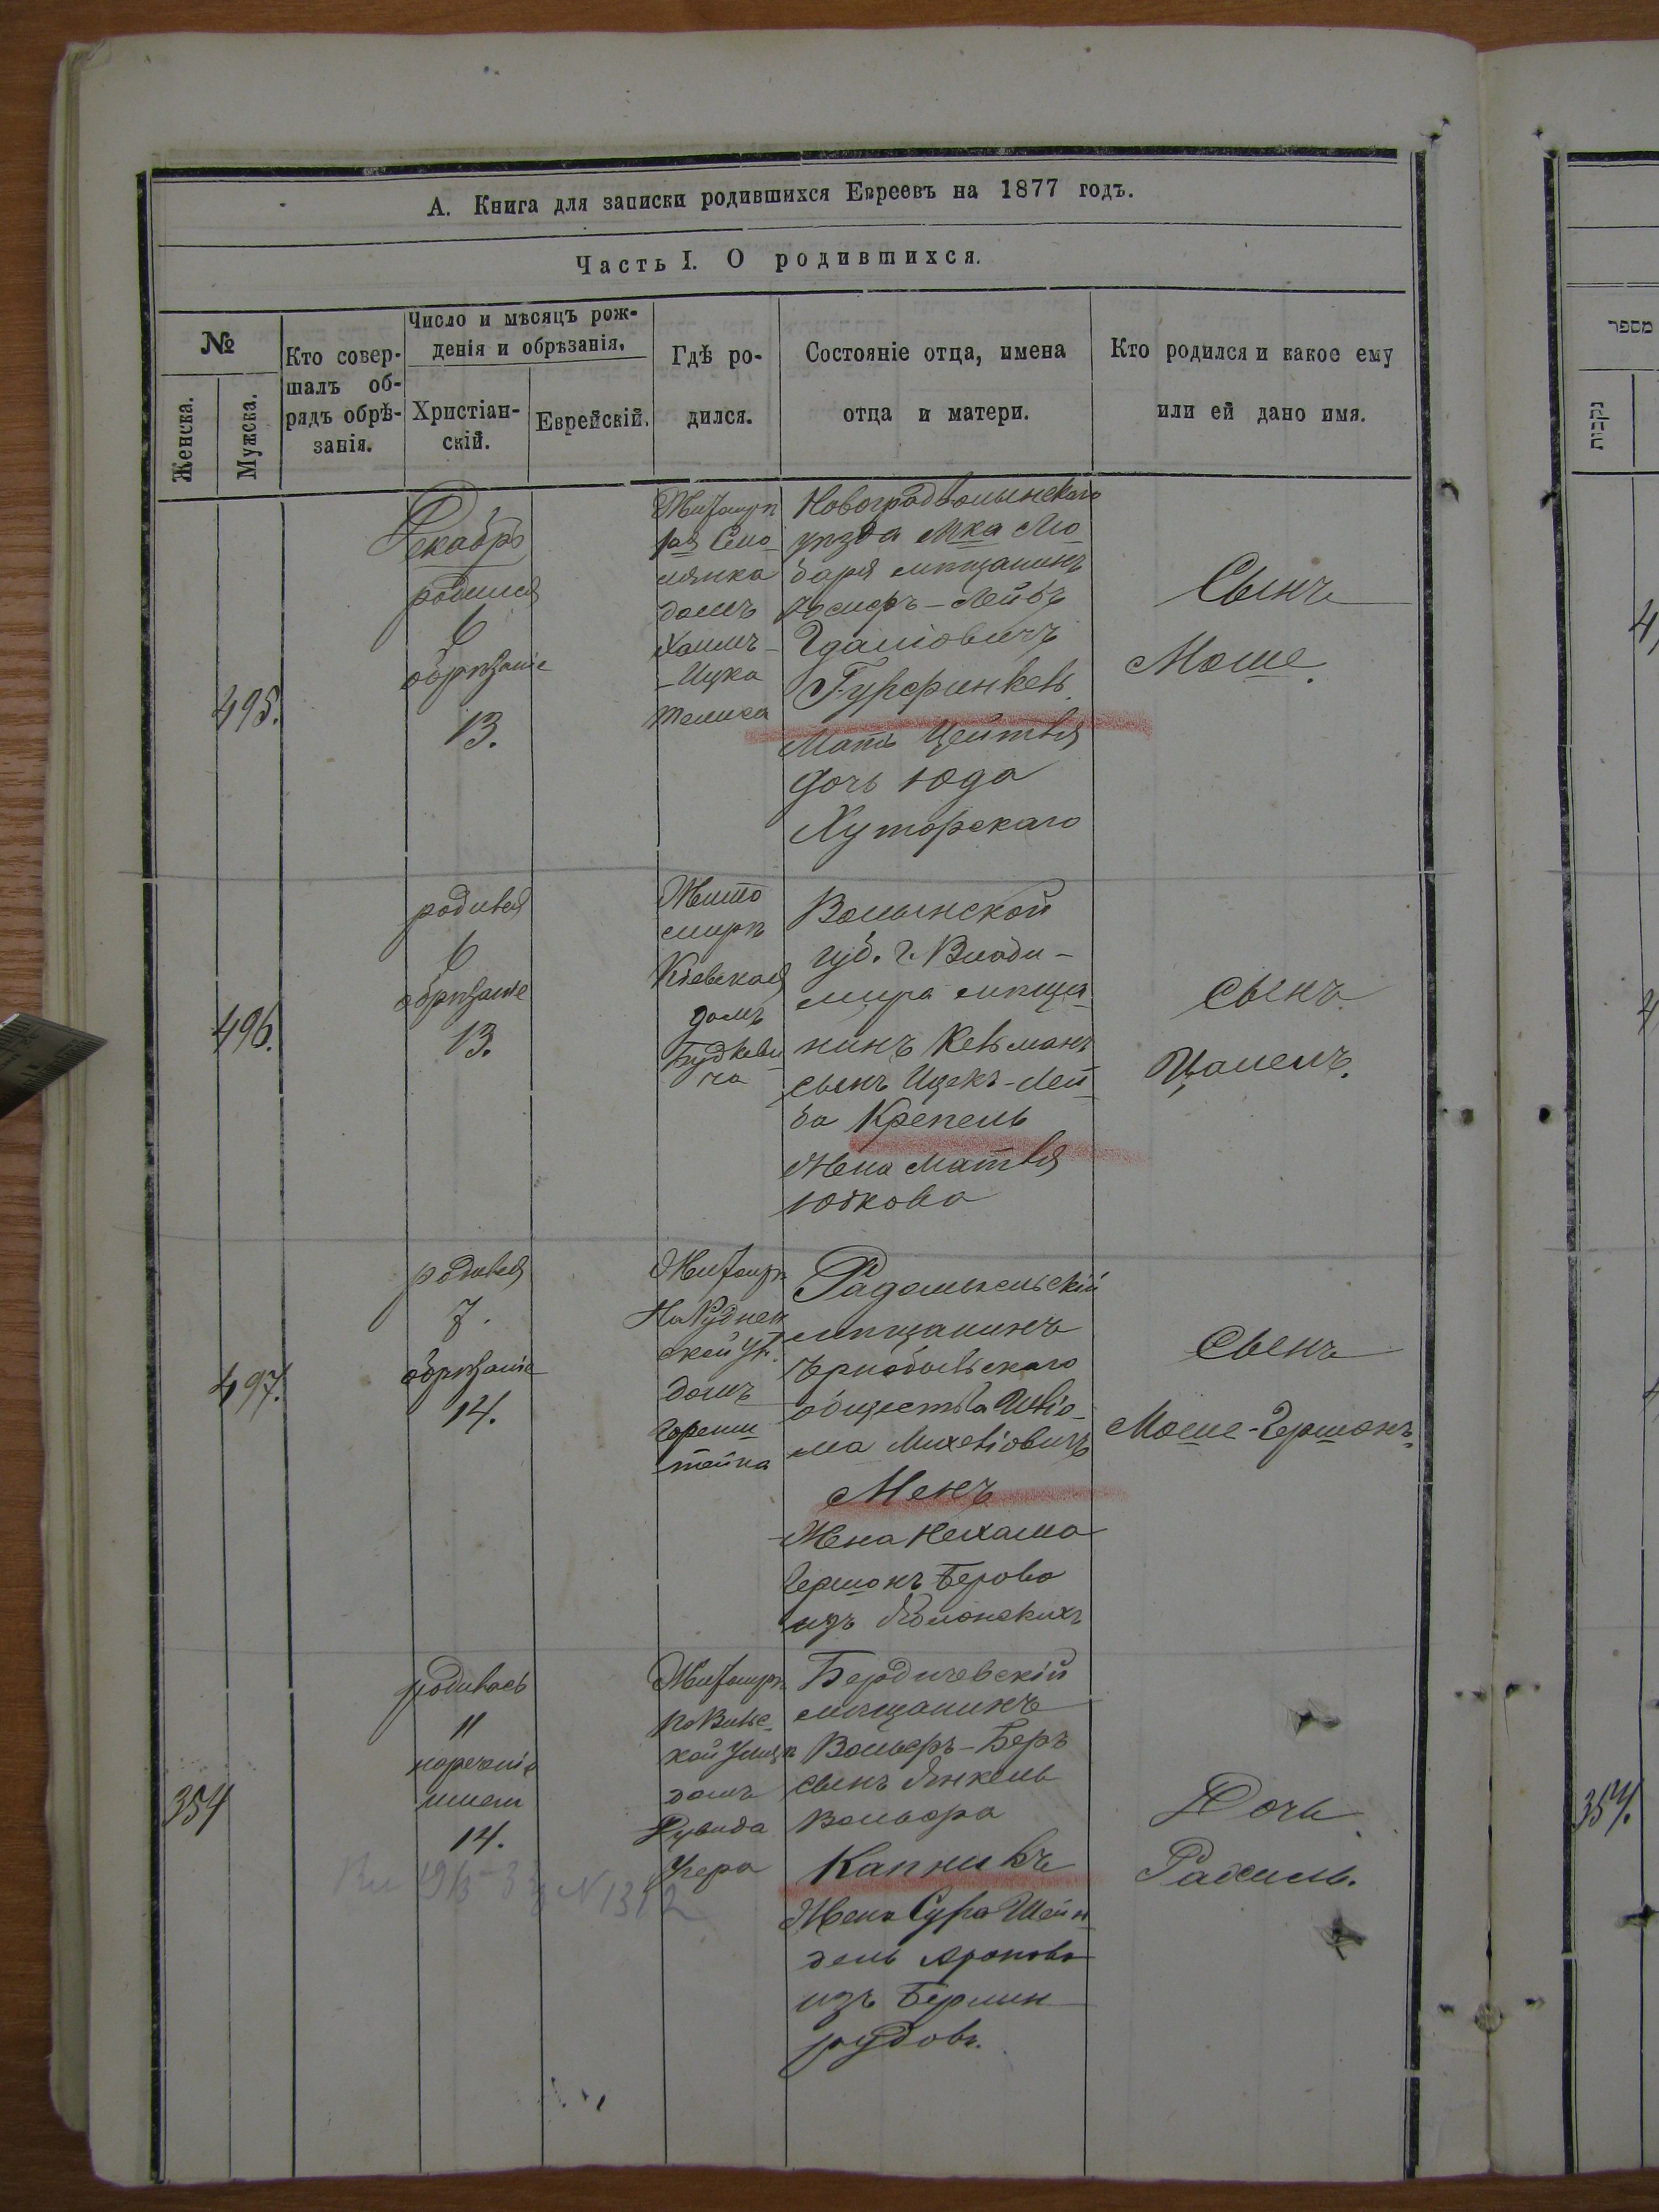 А. Книга для записки родившихся Евреевъ на 1877 годъ.
Часть I. О родившихся.
№
Женска.
Мужска.
Кто совер-
шалъ об-
рядъ обрѣ-
занія.
Число и мѣсяцъ рож-
денія и обрѣзанія.
Христіан-
скій.
Еврейскій.
Гдѣ ро-
дился.
Состояніе отца, имена
отца и матери.
Кто родился и какое ему
или ей дано имя.
495.
Декабрь
родился
6
обрѣзаніе
13.
Житомирѣ
домъ
Хаимъ-
-Ицка
Новоградволынскаго
уѣзда Мка Лю-
баря мѣщанинъ
Іосифъ-Лейбъ
Гдаліовичъ
Гурфинкель
Мать Цейтля
дочь Юда
Хуторскаго
Сынъ
Моше.
496.
родился
6
обрѣзаніе
13.
Жито
мирѣ
Кіевская
домъ
Будкеви-
ча
Волынской
губ. г. Влади-
мира мѣща-
нинъ Кельманъ
сынъ Ицекъ-Лей-
ба Крепель
Жена Матля
Юдкова
сынъ
Цалель.
497.
родился
7.
обрѣзаніе
14.
Житомирѣ
На Руднен
ской ул.
домъ
Горенш
тейна
Радомысльскій
мѣщанинъ
Чернобыльскаго
общества Шліо-
ма Михеліовичъ
Менъ
Жена Нехама
Гершонъ Берова
изъ
Сынъ
Моше-Гершонъ.
354
родилась
11
нареченіе
имени
14.
Житомирѣ
по Вильс-
кой улицѣ
домъ
Бердичевскій
мѣщанинъ
Вольфъ-Беръ
сынъ Янкель
Вольфа
Капникъ
Жена Сура Шейн-
дель Аронова
изъ Бермин
рудовъ.
Дочь
Рахиль.
N 1312
מספר
נקבות
354.